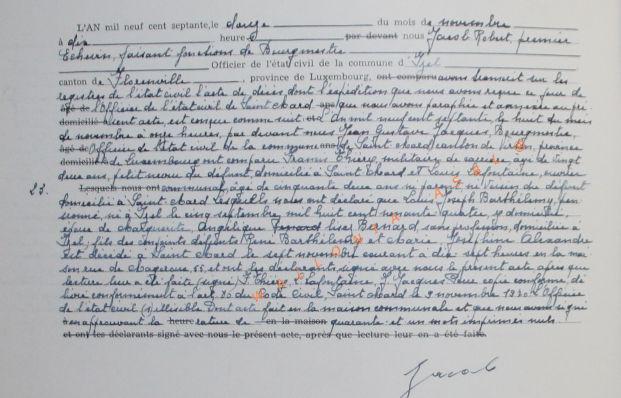 L'AN mil neuf cent septante, le douze du mois de novembre
à dix heures par devant nous Jacob Robert, premier
Echevin, faisant fonctions de Bourgmestre
Officier de l'état civil de la commune d'Izel
canton de Florenville, province de Luxembourg, ont comparu avons transcrit sur les
registres de l'état civil l'acte de décès, dont l'expédition que nous avons reçue ce jour de
âgé de l'Officier de l'état civil de Saint Mard que nous avons paraphée et annexée au pré
domicilié sent acte, est conçue comme suit: An mil neuf cent septante, le huit du mois
de novembre à onze heures, par devant nous Jean Gustave Jacques, Bourgmestre,
âgé de Officier de l'état civil de la commune de Saint Mard canton de Virton, province
domicilié de Luxembourg ont comparu Francis Thiery, militaire de carrière, âgé de vingt
deux ans, petit neveu du défunt, domicilié à Saint Mard et Louis Lafontaine, ouvrier
23. Lesquels nous ont communal, âgé de cinquante deux ans ni parent ni voisin du défunt
domicilié à Saint Mard Lesquels nous ont déclaré que Louis Joseph Barthélemy, pen
sionné, né à Izel le cinq septembre, mil huit cent nonante quatre, y domicilié,
époux de Marguerite, Angélique Lise Bernard, sans profession, domiciliée à
Izel, fils des conjoints défunts René Barthélemy et Marie Joséphine Alexandre
est décédé à Saint Mard le sept novembre courant à dix sept heures en la mai
son rue de Mageroux, 55, et ont les déclarants, signé avec nous le présent acte après que
lecture leur a été faite (signé) F. Thiery, L. Lafontaine, J. Jacques Pour copie conforme dé
livré conformément à l'art. 80 du Code Civil, Saint Mard le 9 novembre 1970 L'Officier
de l'état civil (s) illisible Dont acte fait en la maison communale et que nous avons signé
en approuvant la rature de quarante et un mots imprimés nuls.
et ont les déclarants signé avec nous le présent acte, après que lecture leur en a été faite.
Jacob